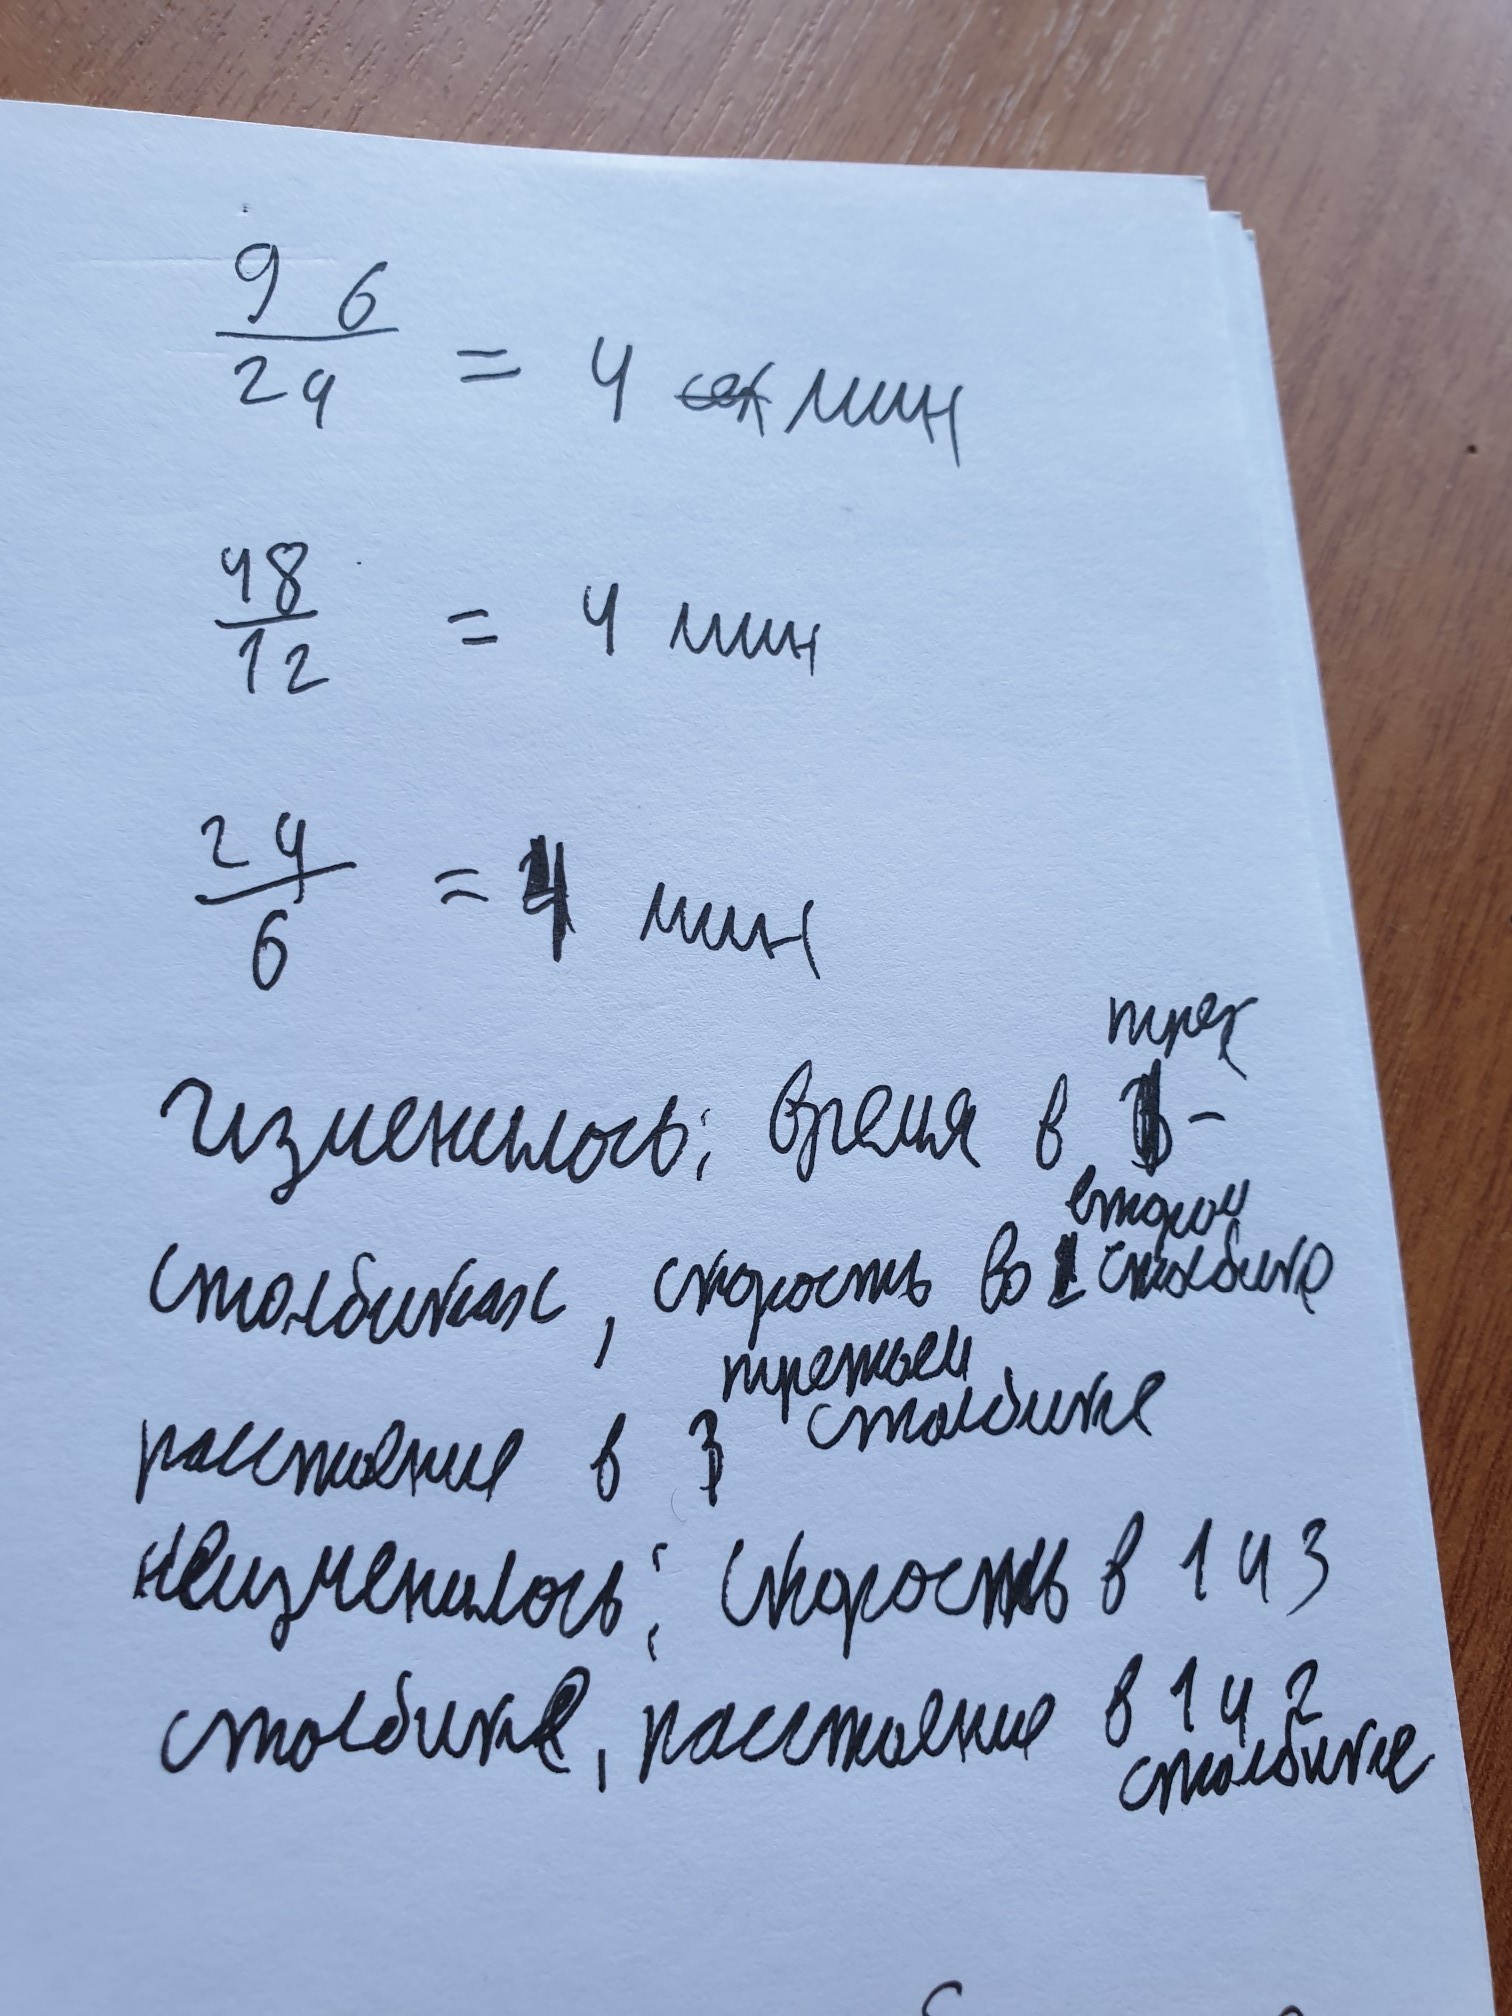 96
24 = 4 сек мин
48
12 = 4 мин
24
6 = 4 мин
трех
Изменилось: время в -
столбиках, скорость во второй столбике
расстояние в 3 третьем столбике
неизменилось: скорость в 1 и 3
столбике, расстояние в 1 и 2
столбике